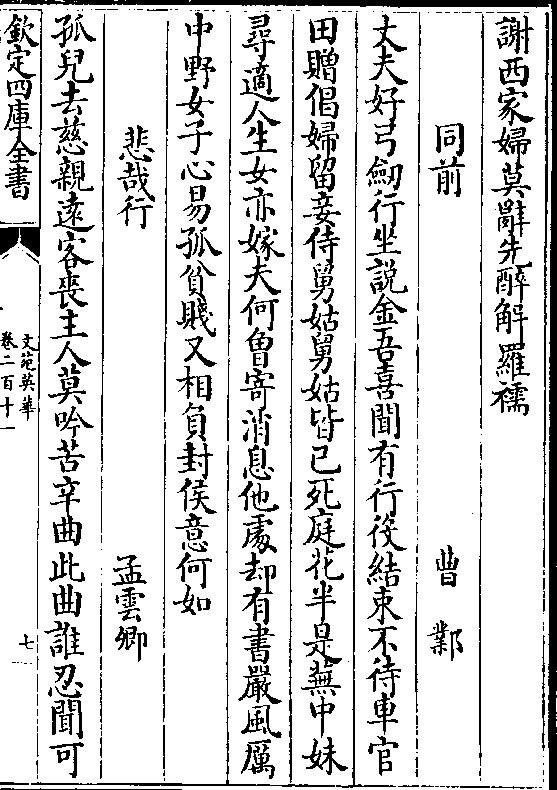 謝西家婦莫辭先醉解羅襦
同前　曹鄴
丈夫好弓劒行坐説金吾喜聞有行役結束不待車官
田贈倡婦留妾侍舅姑舅姑皆已死庭花半是蕪中妹
尋適人生女亦嫁夫何曾寄消息他處却有書嚴風厲
中野女子心易孤貧賤又相負封侯意何如
悲哉行　孟雲卿
孤兒去慈親逺客喪主人莫吟苦辛曲此曲誰忍聞可
欽定四庫全書
文苑英華
卷二百十一
七